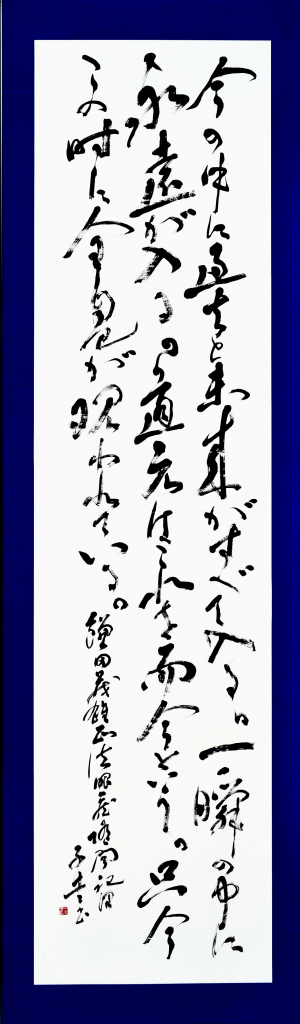 今の中に過去と未来がすべて入る。一瞬の中に
永遠が入るの道元はこれを而今という。只今
この時に全自己が現われている。
鎌田茂雄正法眼蔵随聞記